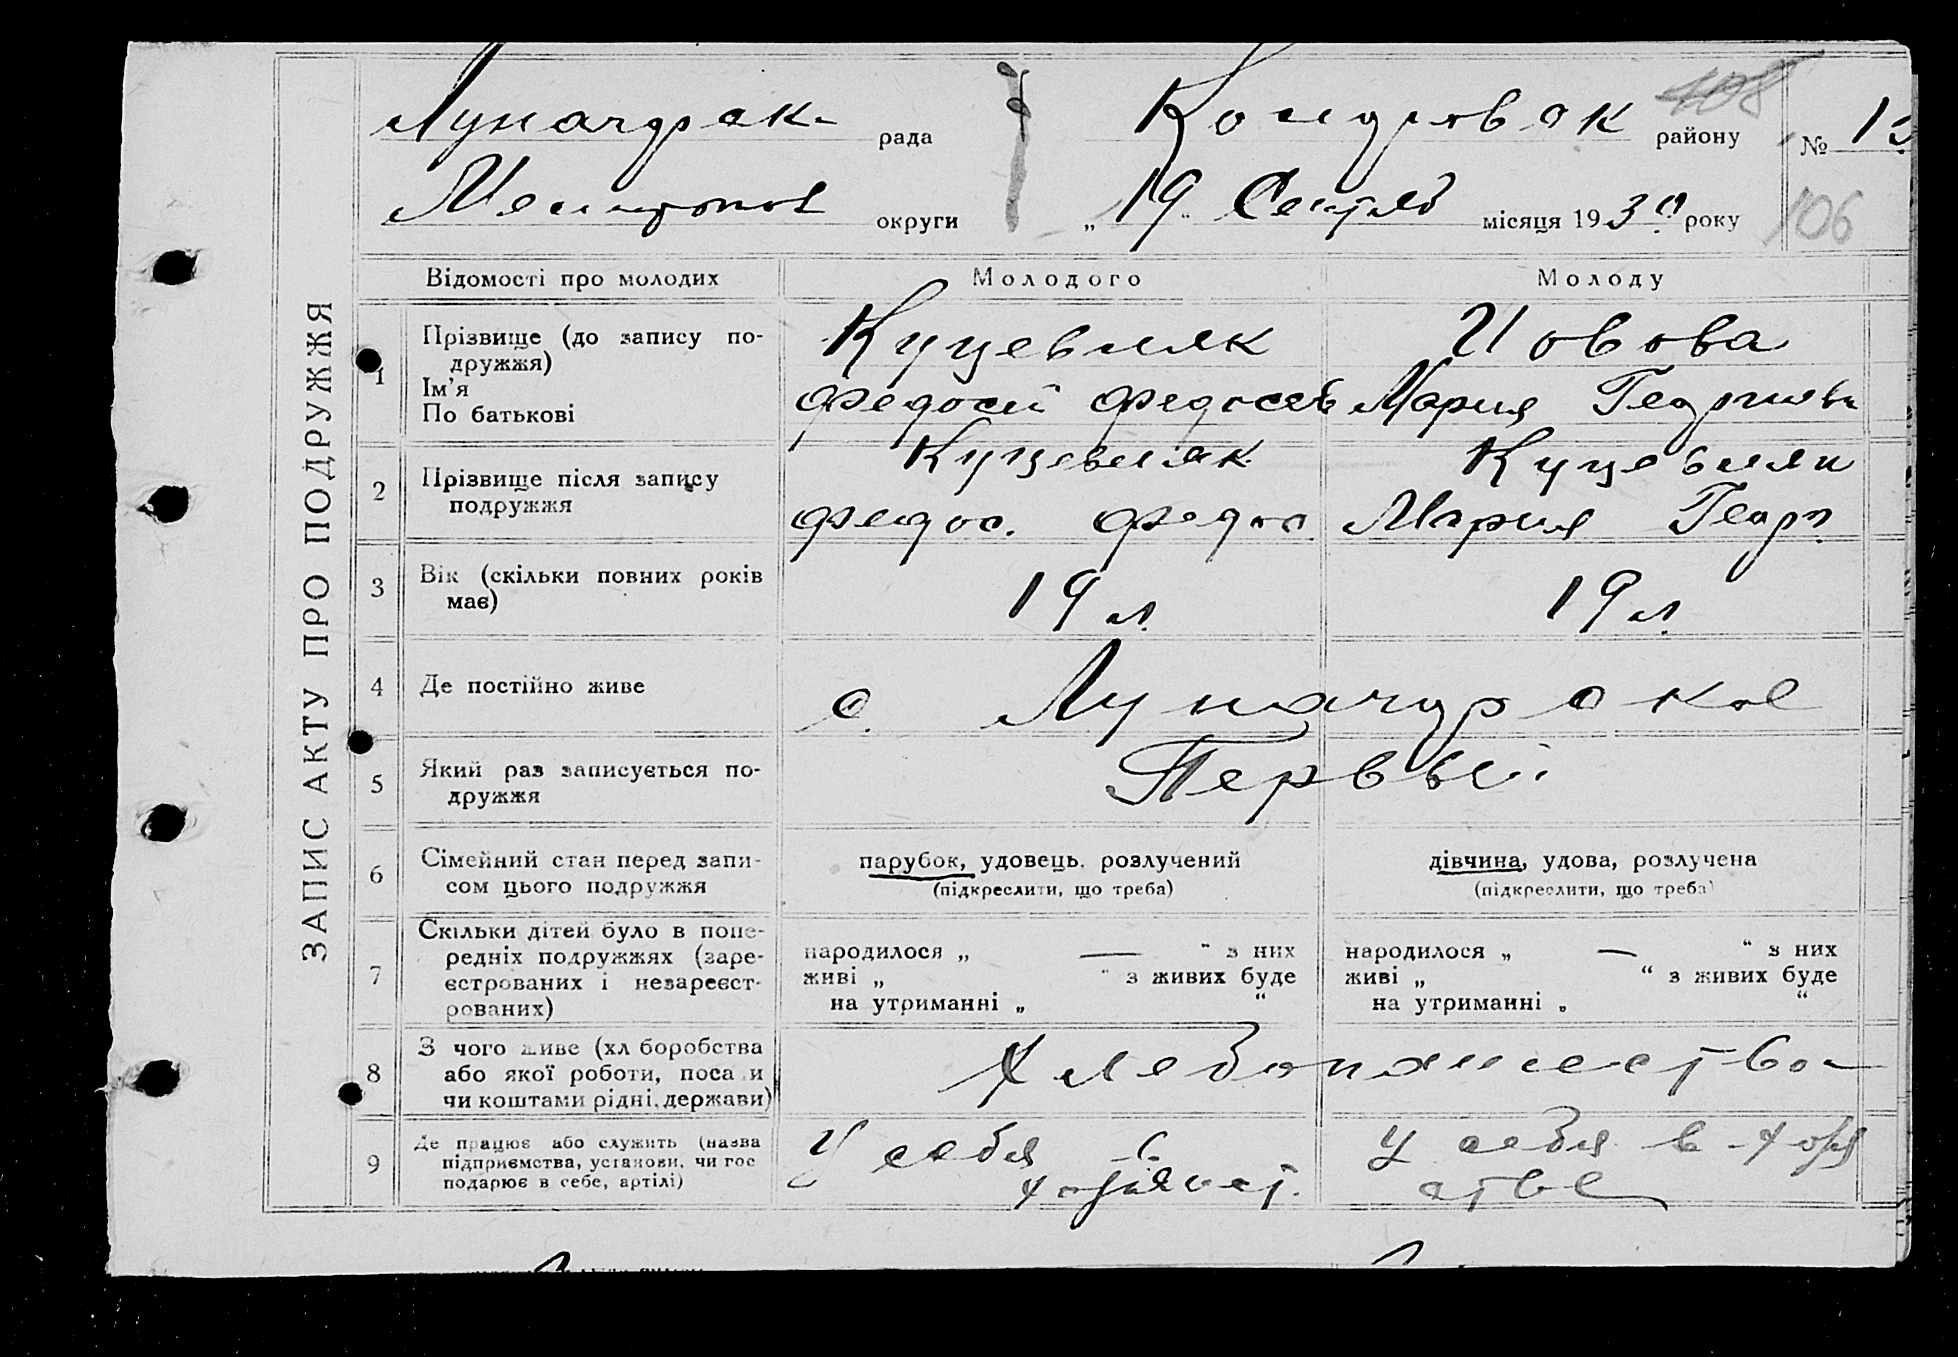 ЗАПИС АКТУ ПРО ПОДРУЖЖЯ
Луначарск- рада
Мелитопол округи
район у
№ 13
108
"19" Сентяб місяця 1930 року
106
Відомості про молодих Молодого Молоду
1 Прізвище (до запису по-
дружжя)
Ім'я
По батькові
Куцевляк Иовова
Федосий Федосев Мария Георгиевн
2 Прізвище після запису
подружжя
Куцевляк Куцевляк
Федос. Федос. Мария Геор.
3 Вік (скільки повних років
має)
19 л. 19 л.
4 Де постійно живе
с. Луначарское
5 Який раз записується по-
дружжя
Первый
6 Сімейний стан перед запи-
сом цього подружжя
парубок, удовець, розлучений
(підкреслити, що треба)
дівчина, удова, розлучена
(підкреслити, що треба)
7 Скільки дітей було в попе-
редніх подружжях (заре-
єстрованих і незареєст-
рованих)
народилося „ — “ з них
живі „ “ з живих буде
на утриманні „ “
народилося „ — “ з них
живі „ “ з живих буде
на утриманні „ “
8 З чого живе (хліборобства
або якої роботи, посади
чи коштами рідні, держави)
Хлебопашество
9 Де працює або служить (назва
підприємства, установи, чи гос
подарює в себе, артілі)
У себя в
хозяйст.
У себя в хозя
стве